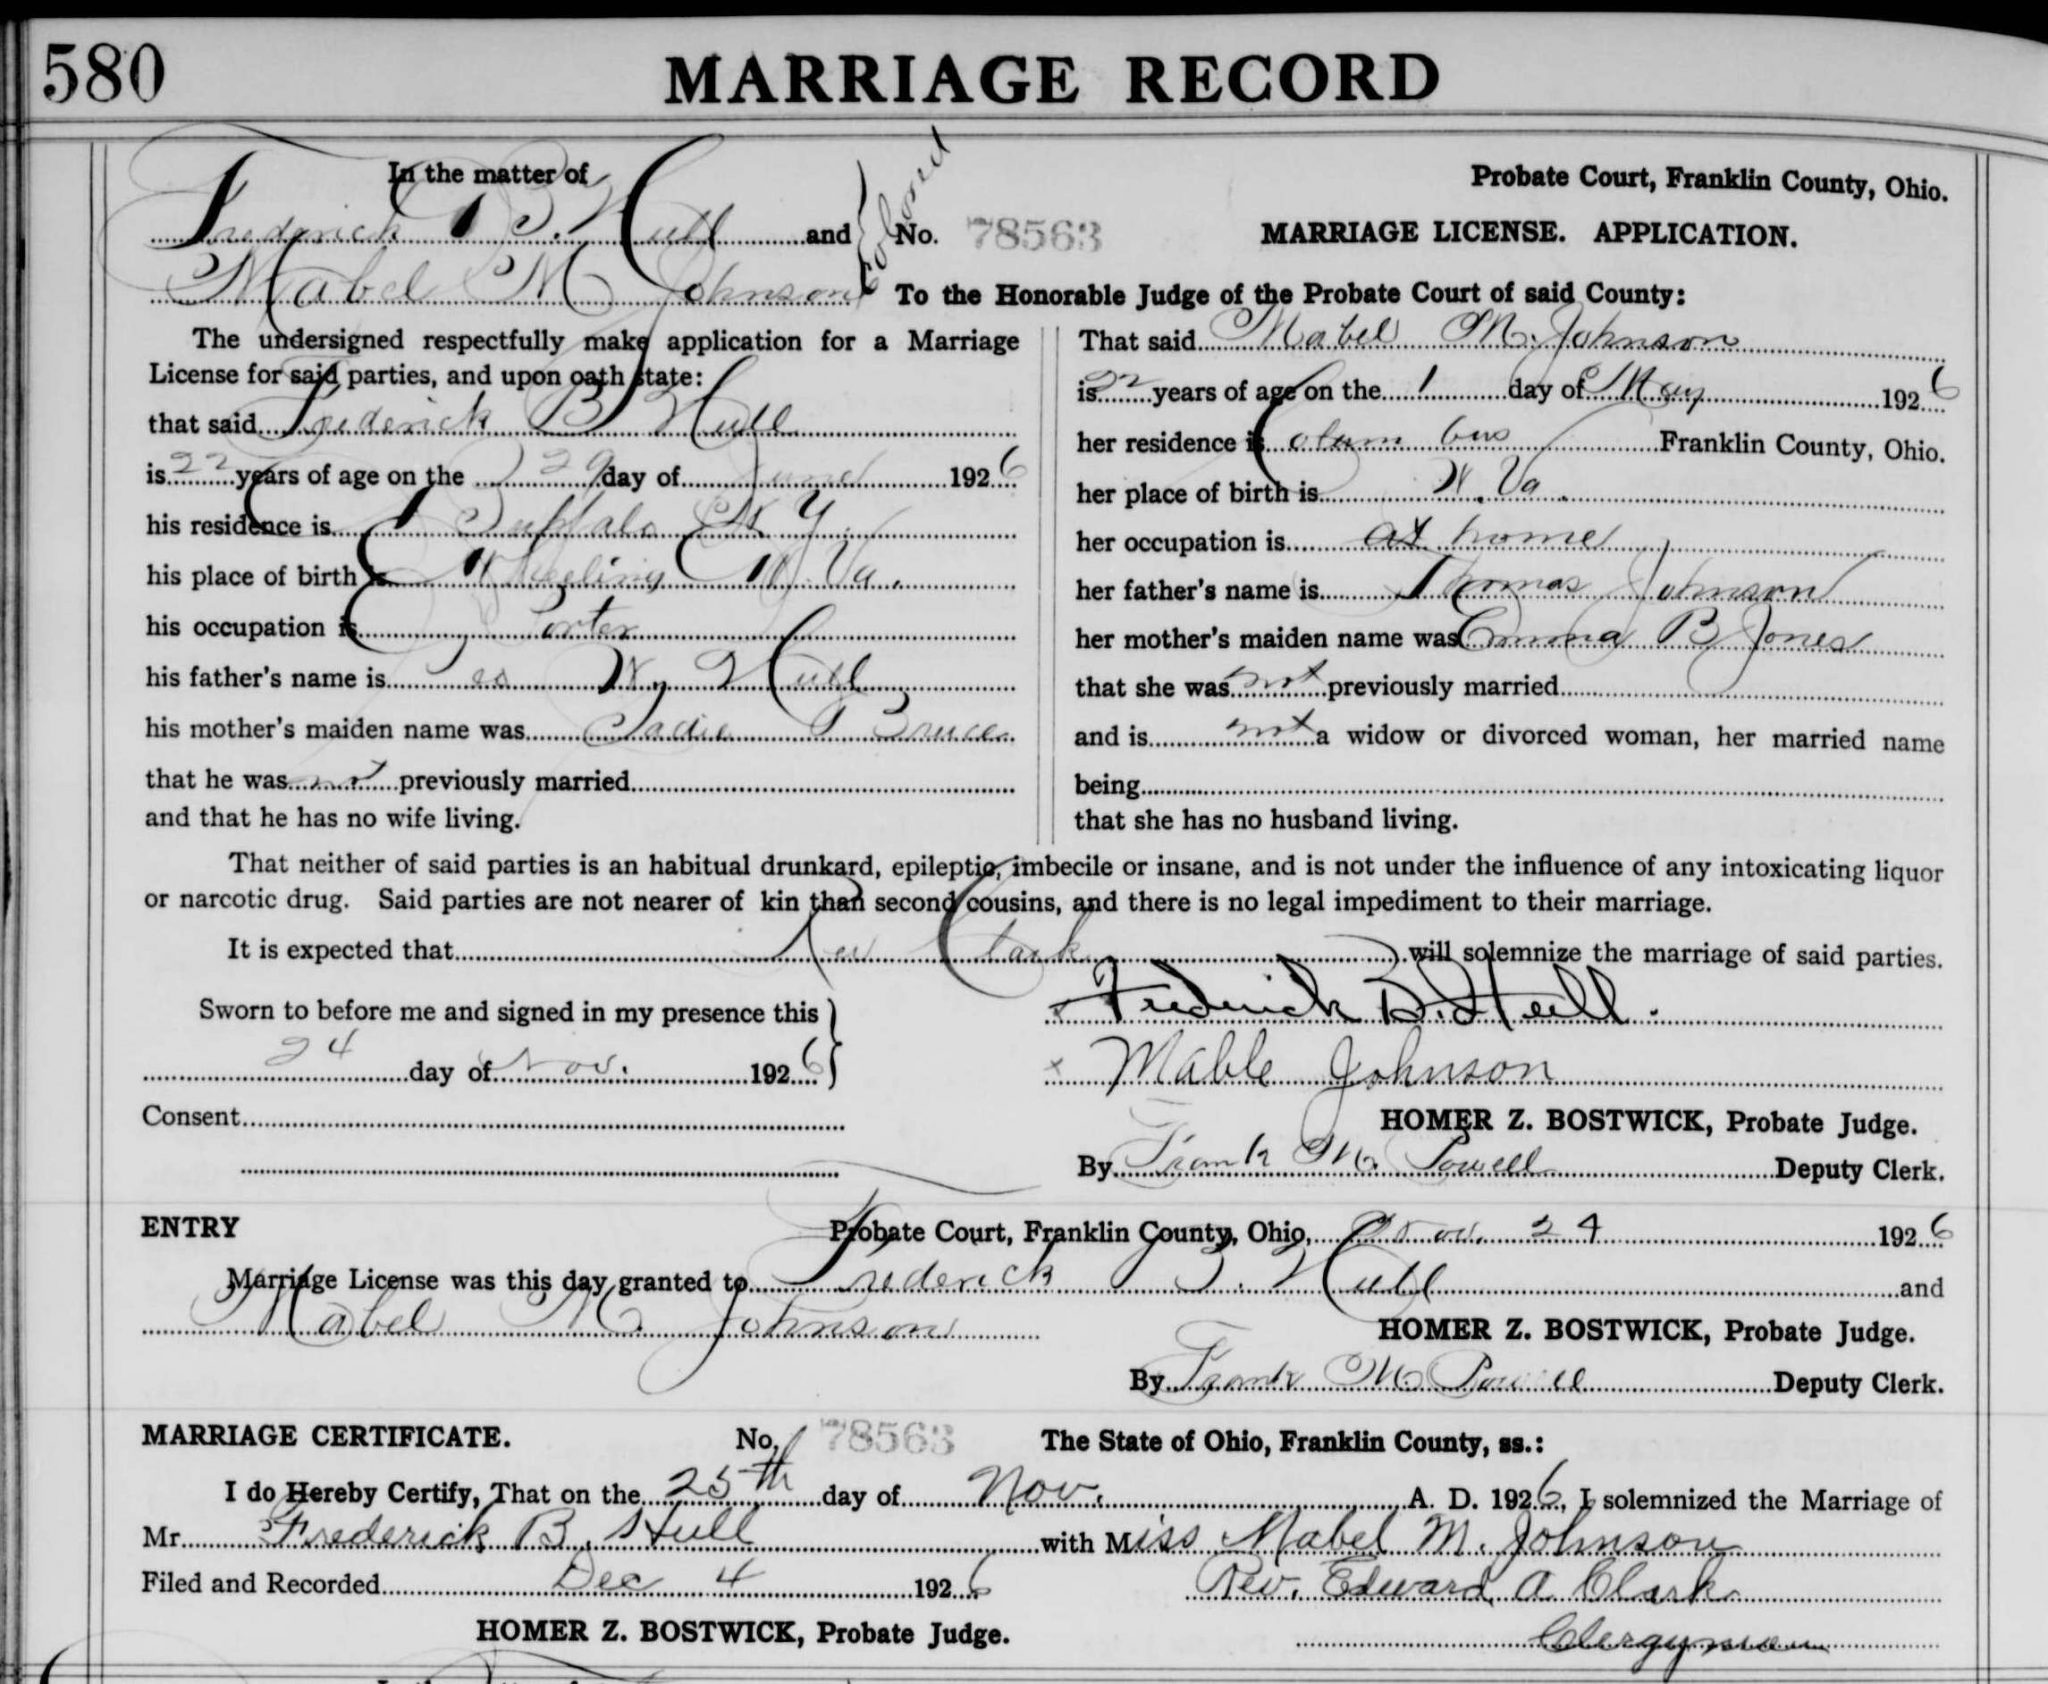 580
MARRIAGE RECORD
In the matter of
Frederick B. Hull and
Mabel M Johnson
Colored
No. 78563
Probate Court, Franklin County, Ohio.
MARRIAGE LICENSE. APPLICATION.
To the Honorable Judge of the Probate Court of said County:
The undersigned respectfully make application for a Marriage
License for said parties, and upon oath state:
that said Frederick B Hull
is 22 years of age on the 29 day of June 1926
his residence is Buffalo N Y.
his place of birth is Wheeling W. Va.
his occupation is Porter
his father's name is W. Hull
his mother's maiden name was Sadie Bruce
that he was not previously married
and that he has no wife living.
That said Mabel M. Johnson
is 22 years of age on the 1 day of May 1926
her residence is Columbus Franklin County, Ohio.
her place of birth is W. Va.
her occupation is at home
her father's name is Thomas Johnson
her mother's maiden name was Emma B Jones
that she was not previously married
and is not a widow or divorced woman, her married name
being
that she has no husband living.
That neither of said parties is an habitual drunkard, epileptic, imbecile or insane, and is not under the influence of any intoxicating liquor
or narcotic drug. Said parties are not nearer of kin than second cousins, and there is no legal impediment to their marriage.
It is expected that Rev Clark will solemnize the marriage of said parties.
Sworn to before me and signed in my presence this
24 day of Nov. 1926
Consent
x Frederick B. Hull.
x Mable Johnson
HOMER Z. BOSTWICK, Probate Judge.
By Frank M. Powell Deputy Clerk.
ENTRY
Probate Court, Franklin County, Ohio, Nov. 24 1926
Marriage License was this day granted to Frederick B. Hull and
Mabel M. Johnson
HOMER Z. BOSTWICK, Probate Judge.
By Frank M. Powell Deputy Clerk.
MARRIAGE CERTIFICATE. No. 78563 The State of Ohio, Franklin County, ss.:
I do Hereby Certify, That on the 25th day of Nov. A. D. 1926, I solemnized the Marriage of
Mr. Frederick B. Hull with Miss Mabel M. Johnson
Filed and Recorded Dec 4 1926
Rev. Edward A Clark
HOMER Z. BOSTWICK, Probate Judge.
Clergyman